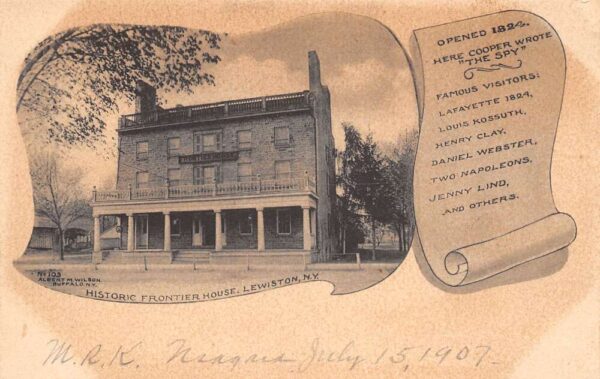 OPENED 1824.
HERE COOPER WROTE
"THE SPY"
FAMOUS VISITORS:
LAFAYETTE 1824,
LOUIS KOSSUTH,
HENRY CLAY,
DANIEL WEBSTER,
TWO NAPOLEONS,
JENNY LIND,
AND OTHERS.
No 103
ALBERT M. WILSON
BUFFALO. N.Y.
HISTORIC FRONTIER HOUSE. LEWISTON, N.Y.
M.R.K. Niagra July 15, 1907.